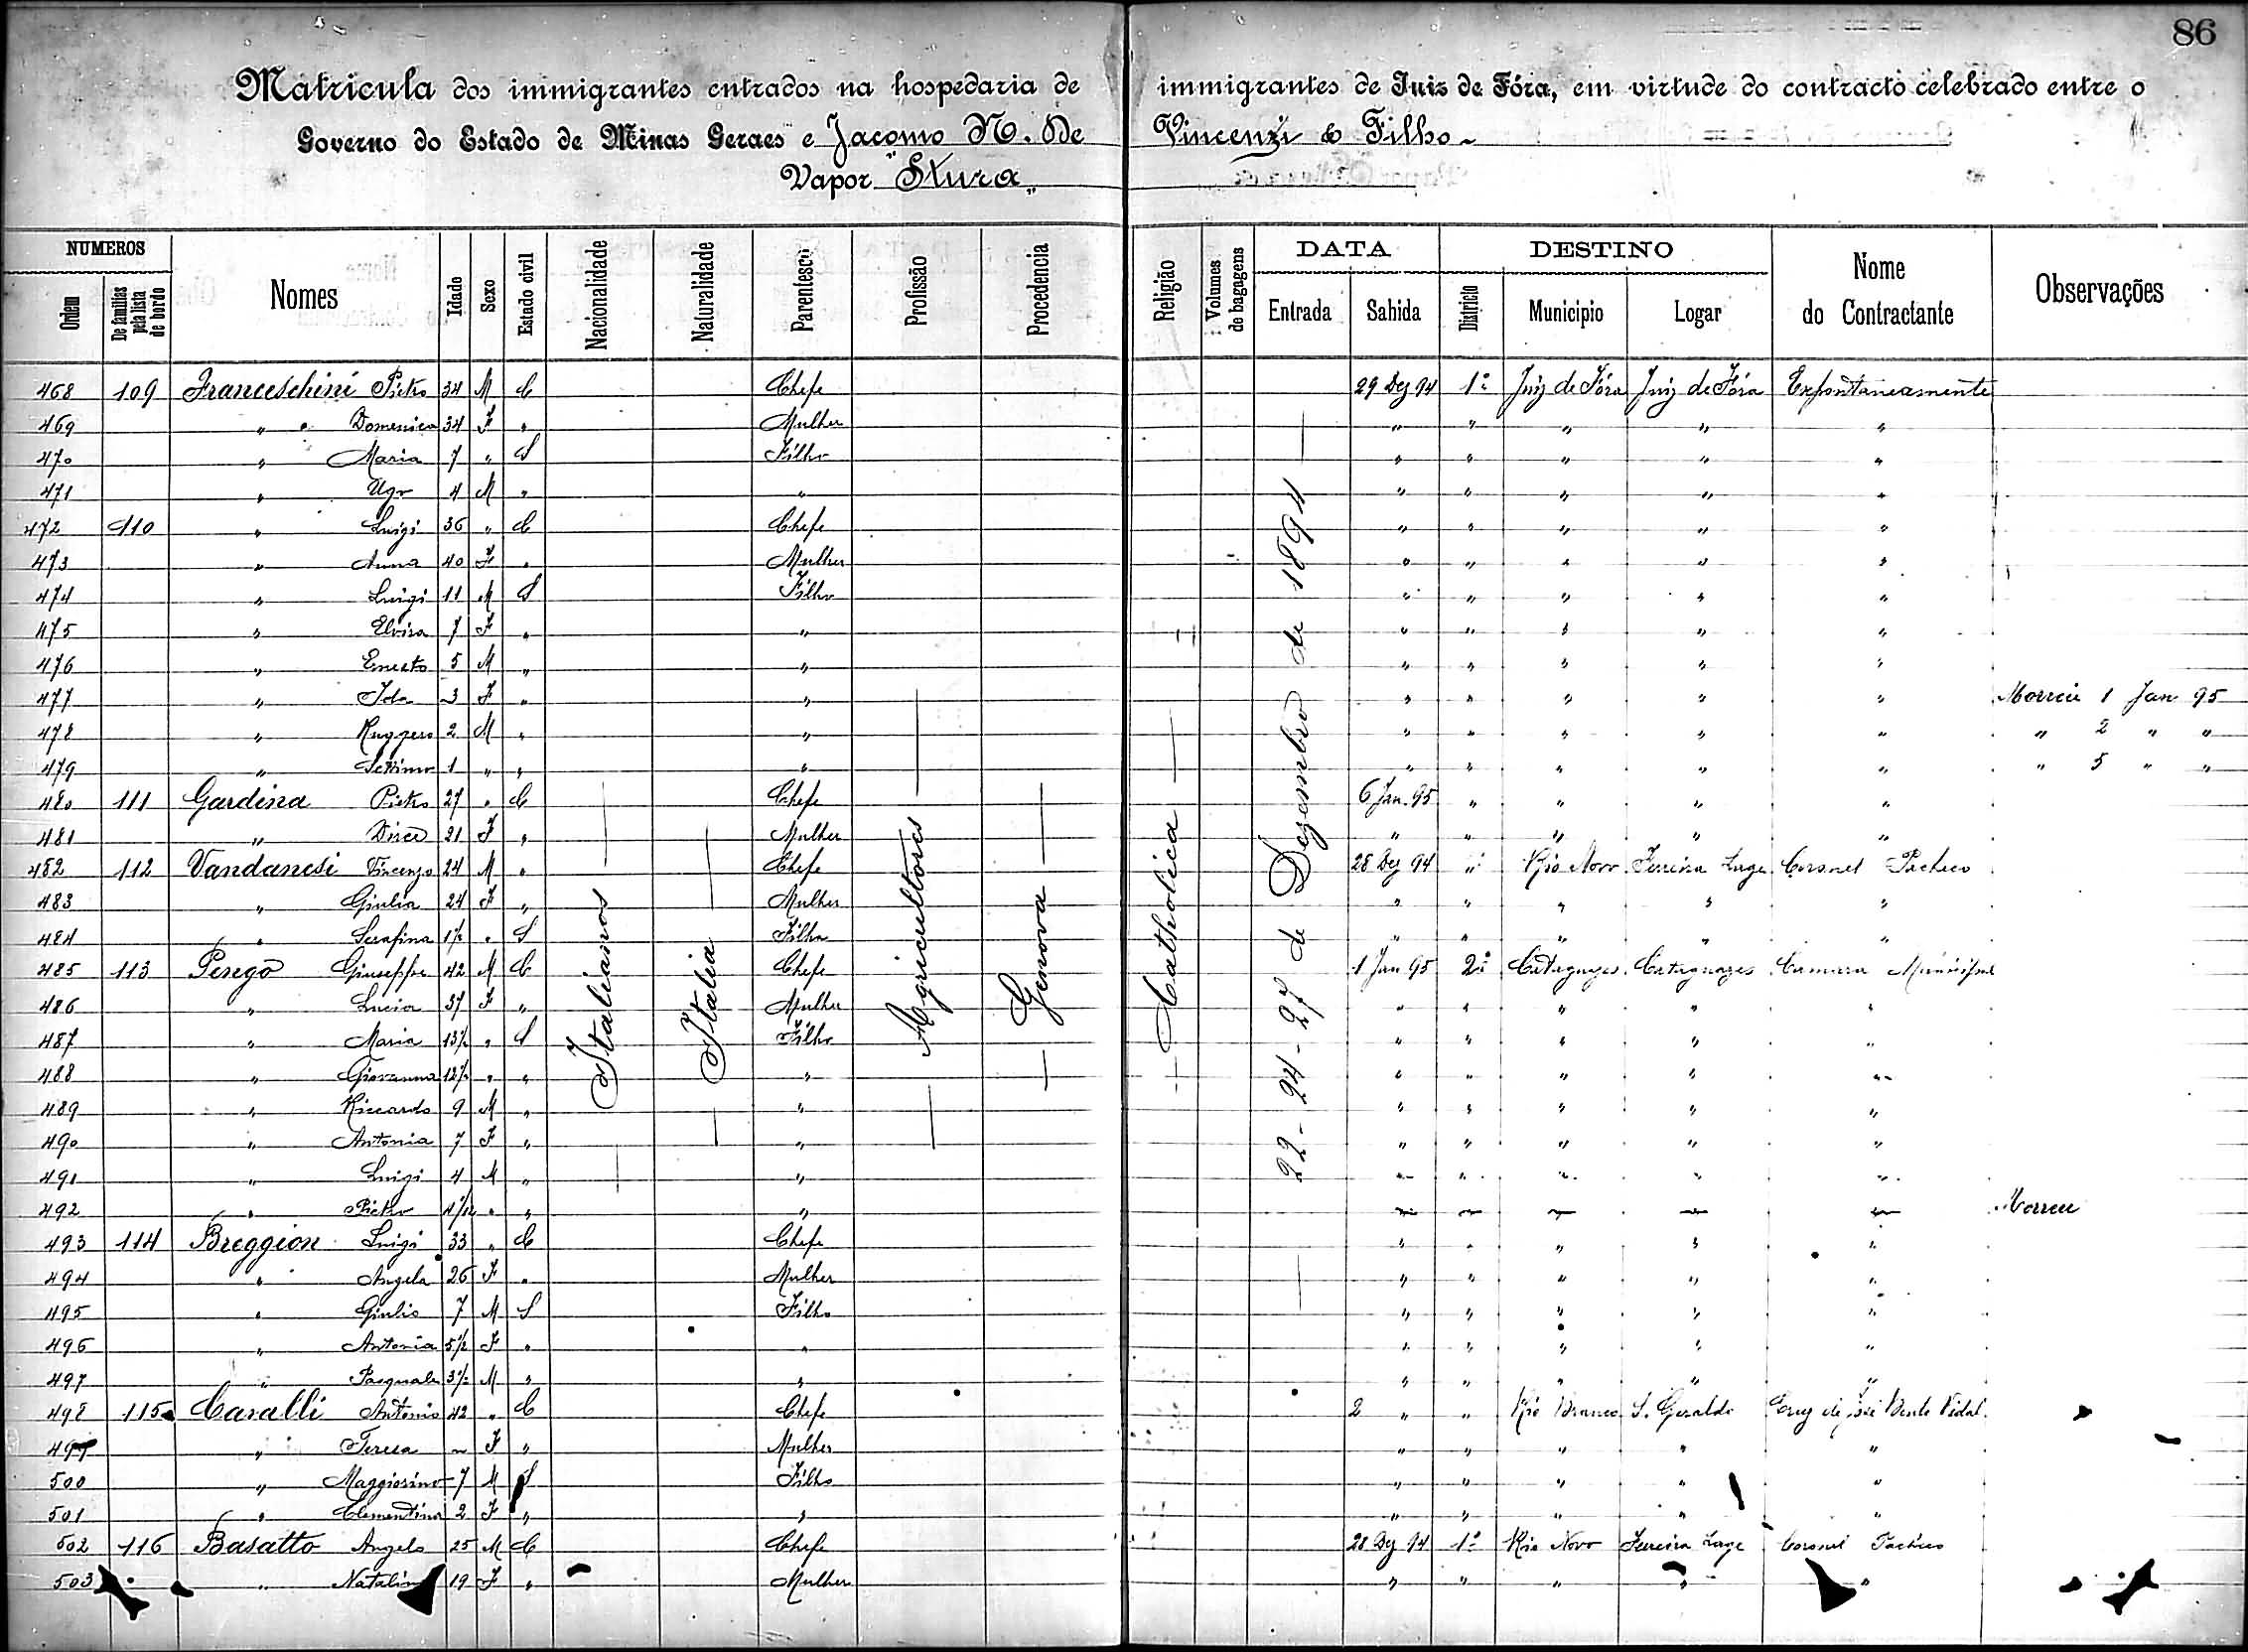 86
Matricula dos immigrantes entrados na hospedaria de immigrantes de Juiz de Fóra, em virtude do contracto celebrado entre o
Governo do Estado de Minas Geraes e Jacomo N. De Vincenzi & Filho
Vapor "Stura"
NUMEROS DATA DESTINO
Ordem De familias pela lista de bordo Nomes Idade Sexo Estado civil Nacionalidade Naturalidade Parentesco Profissão Procedencia Religião Volumes de bagagens Entrada Sahida Districto Municipio Logar Nome do Contractante Observações
Italianos Italia Agricultores Genova Catholica 22-24-27 de Dezembro de 1894
468 109 Franceschini Pietro 34 M C Chefe 29 Dez 94 1º Juiz de Fóra Juiz de Fóra Expontaneamente
469 " Domenica 34 F " Mulher " " " " "
470 " Maria 7 " S Filho " " " " "
471 " Ugo 4 M " " " " " " "
472 110 " Luigi 36 " C Chefe " " " " "
473 " Anna 40 F " Mulher " " " " "
474 " Luigi 11 M S Filho " " " " "
475 " Elvira 7 F " " " " " " "
476 " Ernesto 5 M " " " " " " "
477 " Ida 3 F " " " " " " " Morreu 1 Jan 95
478 " Ruggero 2 M " " " " " " " " 2 " "
479 " Settimo 1 " " " " " " " " " 5 " "
480 111 Gardina Pietro 27 " C Chefe 6 Jan. 95 " " " "
481 " Dirce 21 F " Mulher " " " " "
482 112 Vandanesi Vincenzo 24 M " Chefe 28 Dez 94 " Rio Novo Ferreira Lage Coronel Pacheco
483 " Giulia 24 F " Mulher " " " " "
484 " Serafina 1½ " S Filha " " " " "
485 113 Perego Giuseppe 42 M C Chefe 1 Jan 95 2º Cataguazes Cataguazes Camara Municipal
486 " Lucia 37 F " Mulher " " " " "
487 " Maria 13½ " S Filho " " " " "
488 " Giovanna 12½ " " " " " " " "
489 " Riccardo 9 M " " " " " " "
490 " Antonia 7 F " " " " " " "
491 " Luigi 4 M " " " " " " "
492 " Pietro " " " Morreu
493 114 Breggion Luigi 33 " C Chefe " " " " "
494 " Angela 26 F " Mulher " " " " "
495 " Giulio 7 M S Filho " " " " "
496 " Antonia 5½ F " " " " " " "
497 " Pasquale 3½ M " " " " " " "
498 115 Cavalli Antonio 42 " C Chefe 2 " " Rio Branco S. Geraldo Bento Vidal
499 " Teresa F " Mulher " " " " "
500 " Maggiorino 7 M S Filho " " " " "
501 " Clementina 2 F " " " " " " "
502 116 Basatto Angelo 25 M C Chefe 28 Dez 94 1º Rio Novo Ferreira Lage Coronel Pacheco
503 " Natalina 19 F " Mulher " " " " "